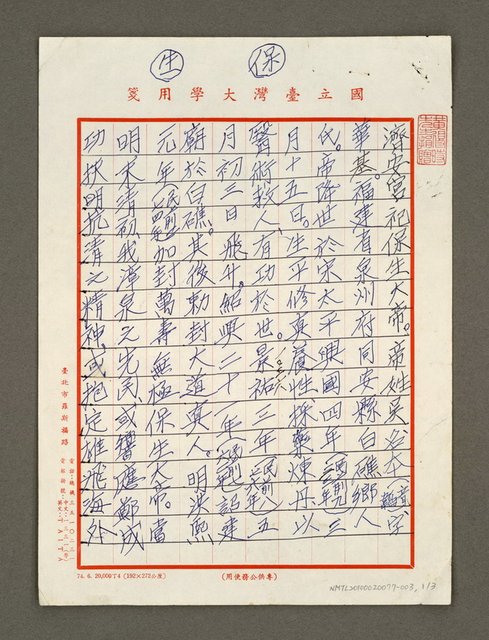 保生
國立臺灣大學用箋
濟安宮祀保生大帝。帝姓吳名本字
華基。福建省泉州府同安縣白礁鄉人
代。帝降世於宋太平興國四年三
月十五日。生平修真養性,採藥煉丹以
醫術救人,有功於世。景祐三年五
月初三日飛升。紹興二十一年詔建
廟於白礁。其後勅封大道真人。明洪熙
元年加封萬壽無極保生大帝。當
明末清初我漳泉之先民或響應鄭成
功扶明抗清之精神,或抱定雄飛海外
臺北市羅斯福路
74. 6. 20,000 T4 (192×272公厘)
(專供公務使用)
NMTL20100020077-003, 1/3